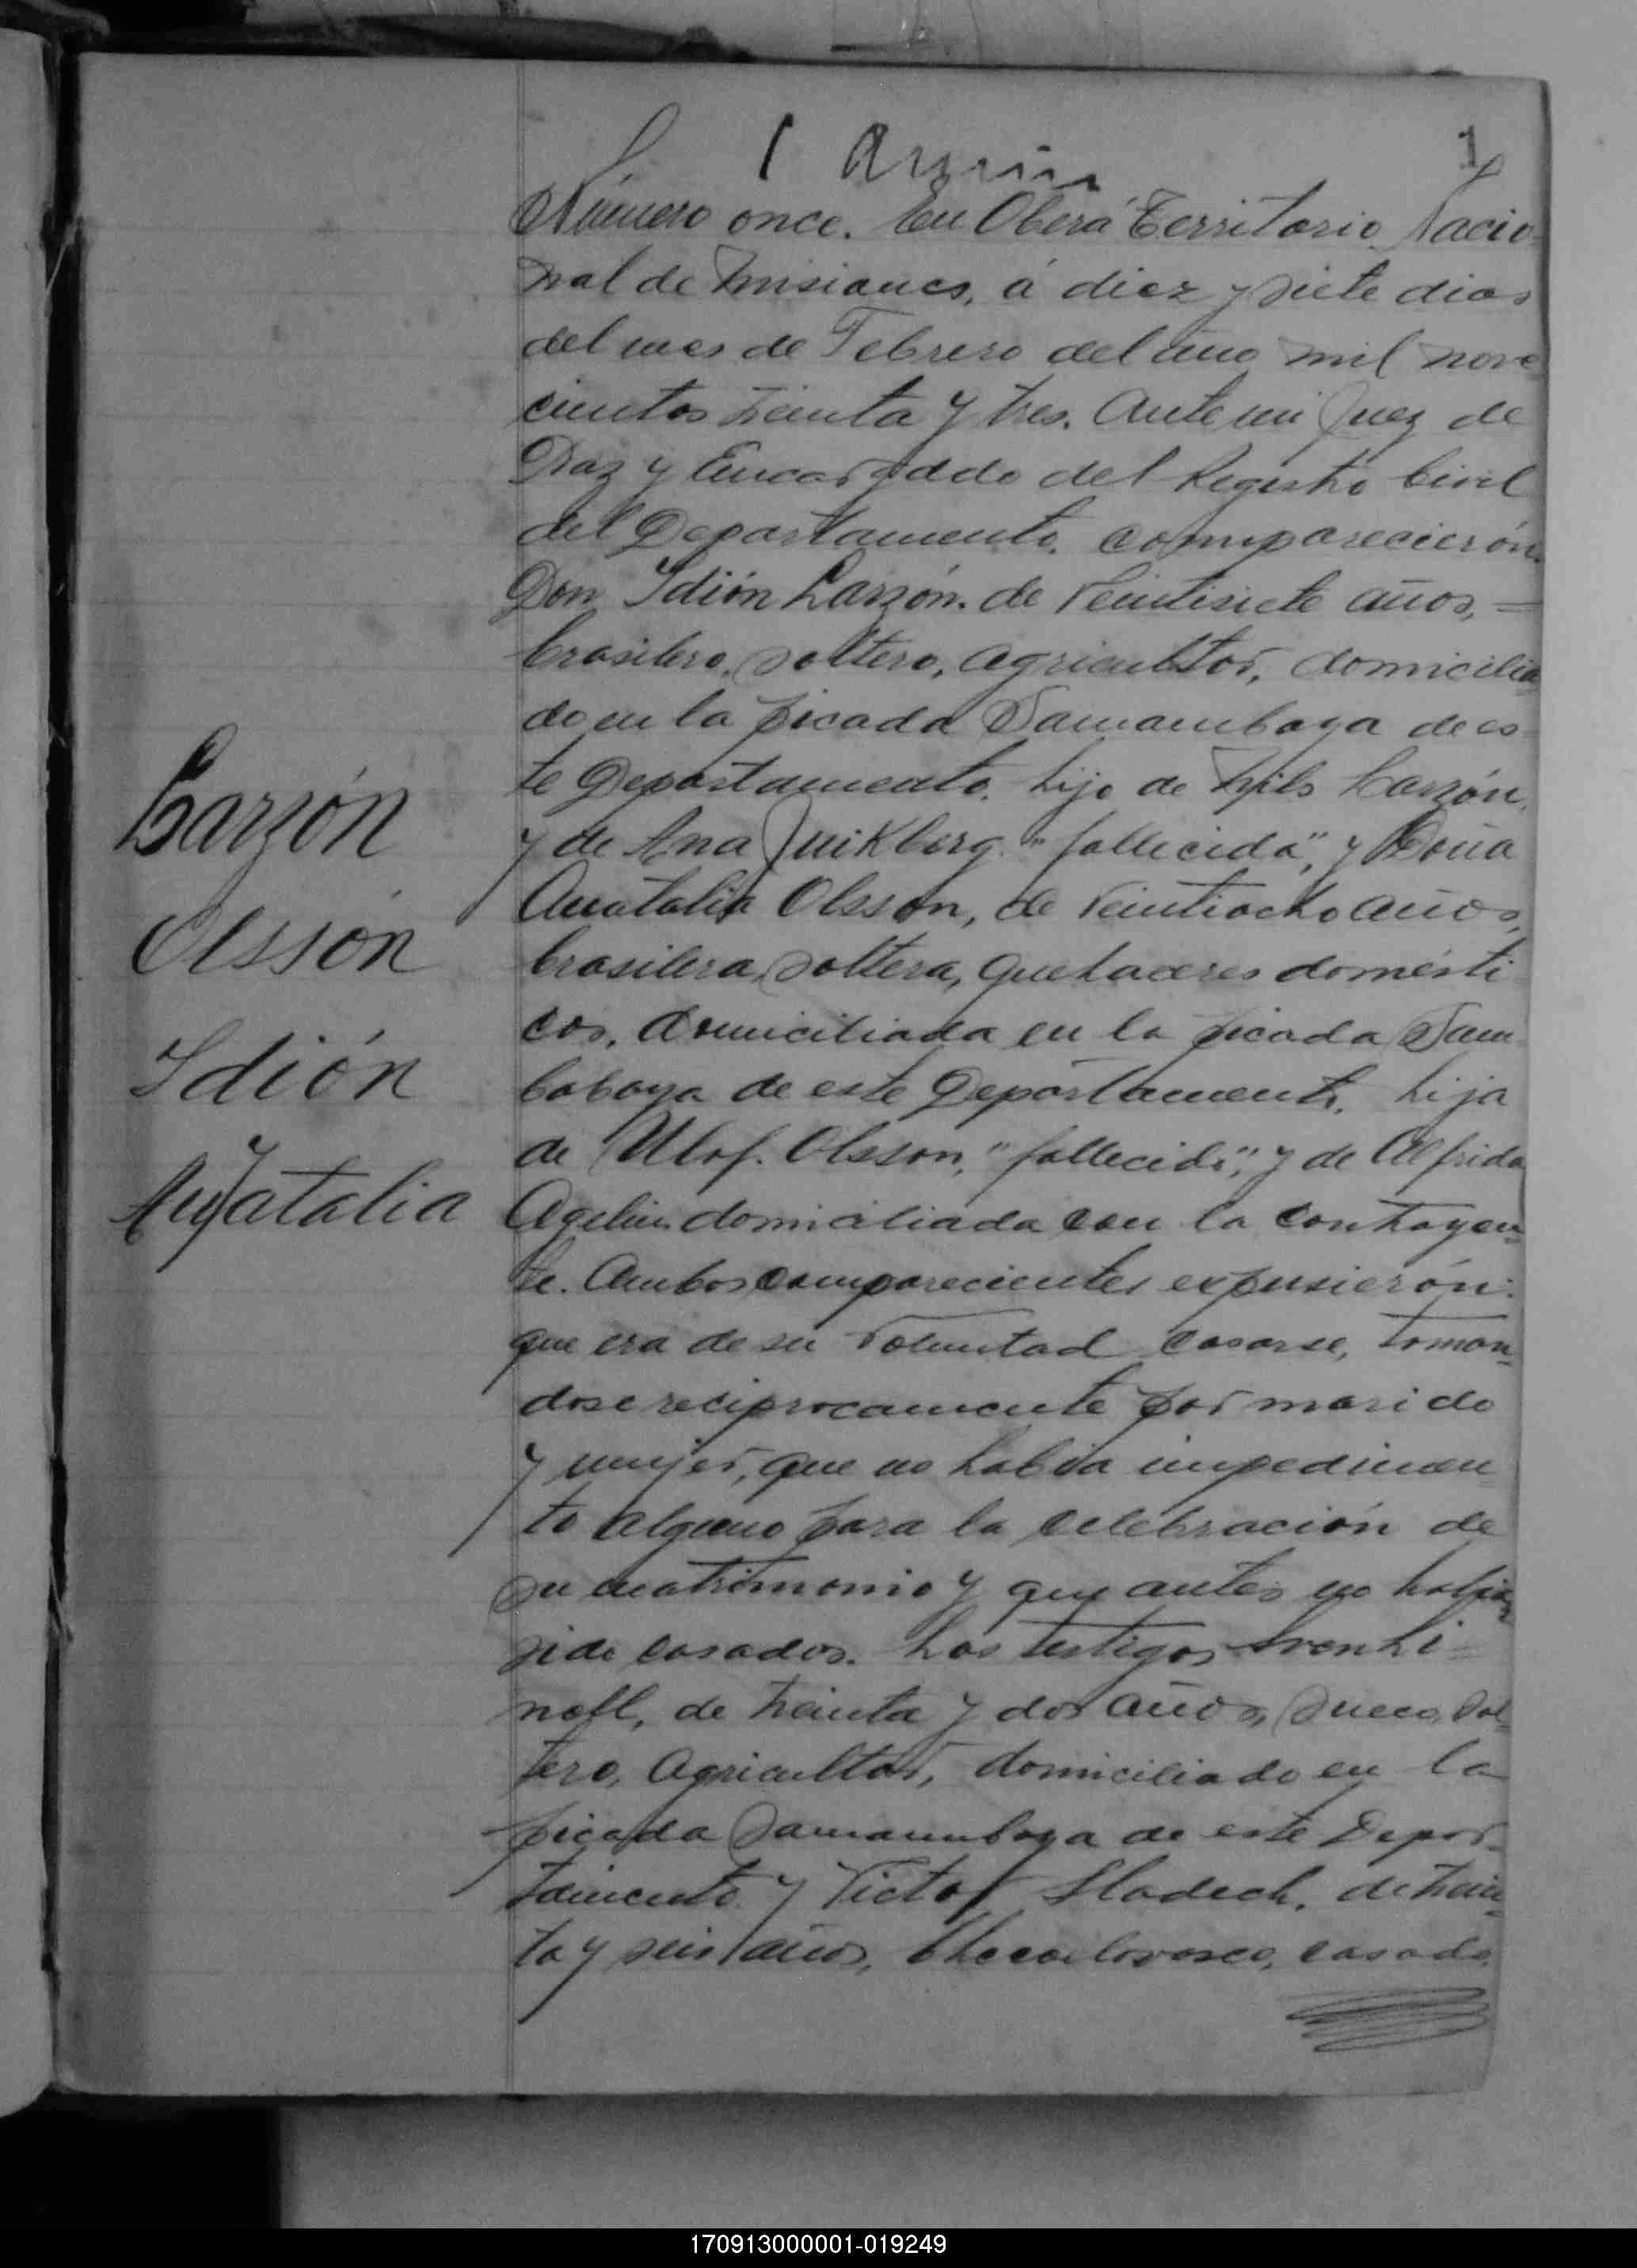 1
Número once. En Oberá Territorio Nacio=
nal de Misiones, á diez y siete dias
del mes de Febrero del año mil nove
cientos treinta y tres. Ante mi Juez de
Paz y Encargado del Registro Civil
del Departamento, comparecierón
Don Idión Larzón. de veintisiete años, =
brasilero, soltero, agricultor, domicilia
do en la picada Samambaya de es
te Departamento. hijo de Nils Larzón,
y de Ana Quikberg "fallecida", y Doña
Anatalia Olsson, de veintiocho años,
brasilera, soltera, quehaceres domésti
cos, domiciliada en la picada Sam
babaya de este Departamento, hija
de Ulof. Olsson, "fallecido", y de Alfrida
Agelin domiciliada con la contrayen
te. Ambos comparecientes expusierón:
que era de su voluntad casarse, toman=
dose reciprocamente por marido
y mujer, que no habia impedimen
to alguno para la celebración de
su matrimonio y que antes no habian
sido casados. Los testigos
de treinta y dos años, sueco, sol=
tero, agricultor, domiciliado en la
picada Samambaya de este Depar=
tamento y Victor Sladech, de trein=
ta y seis años, checoslovaco, casado,
Larzón
Olssón
Idión
Anatalia
170913000001-019249